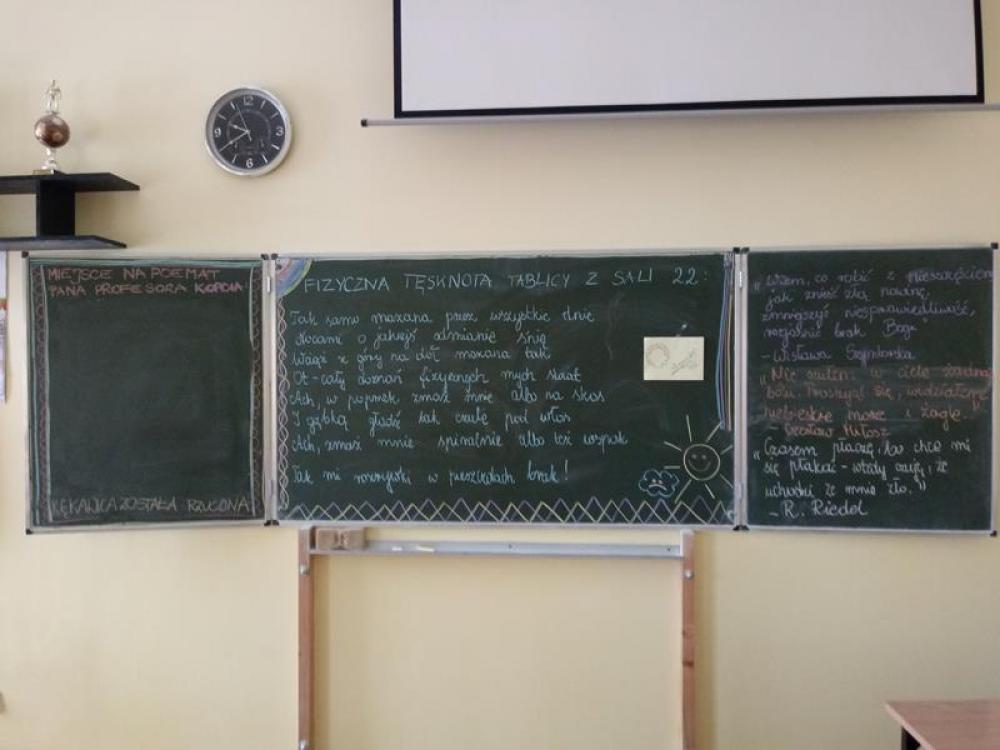 MIEJSCE NA POEMAT
PANA PROFESORA KOPCIA:
RĘKAWICA ZOSTAŁA RZUCONA!
FIZYCZNA TĘSKNOTA TABLICY Z SALI 22:
Tak samo mazana przez wszystkie dnie
Nocami o jakiejś odmianie śnię
Wciąż z góry na dół mazana tak
Ot - cały doznań fizycznych mych świat
Ach, w poprzek zmaż mnie albo na skos
I gąbką gładź tak czule pod włos
Ach, zmaż mnie spiralnie albo też wspak
Tak mi rozrywki w pieszczotach brak!
"Wiem, co robić z nieszczęściem
jak znieść złą nowinę,
zmniejszyć niesprawiedliwość,
rozjaśnić brak Boga"
- Wisława Szymborska
"Nie czułem w ciele żadnego
bólu. Prostując się, widziałem
niebieskie morze i żagle."
- Czesław Miłosz
"Czasem płaczę, bo chce mi
się płakać - wtedy czuję, że
uchodzi ze mnie zło."
- R. Riedel
12
3
6
9